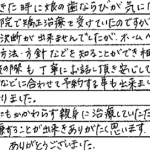 きた時に娘の歯ならびが気に
院で矯正治療を受けていたのですが
決断が出来ませんでしたが、ホームペ
方法・方針などを知ることができ相
の際も丁寧にお話し頂き安心して
などに合わせて予約する事も出来まし
りました。
にもかかわらず親身に治療していただ
療することが出来きありがたく思います
ありがとうございました。